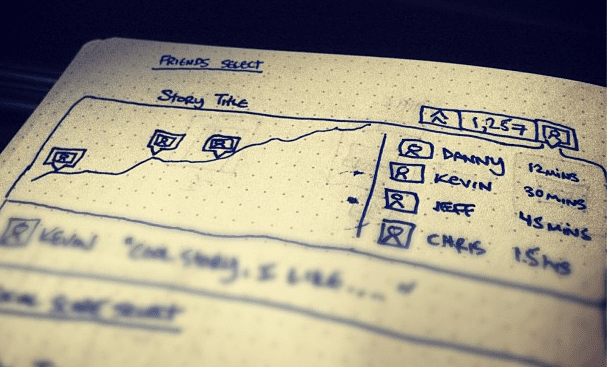 FRIENDS SELECT
STORY TITLE
1,257
DANNY 12 MINS
KEVIN 30 MINS
JEFF 45 MINS
CHRIS 1.5 HRS
KEVIN "COOL STORY, I LIKE...."
SELECT